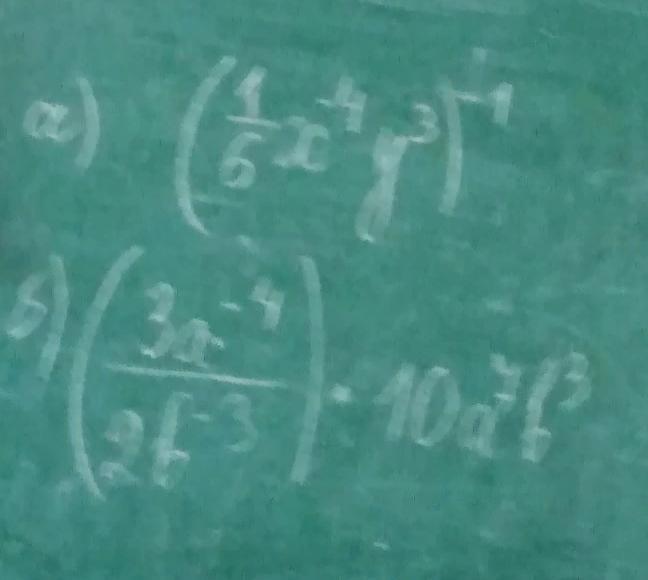 а) (1/6 x⁻⁴ y³)⁻¹
б) (3a⁻⁴ / 2b⁻³) · 10a⁷b³